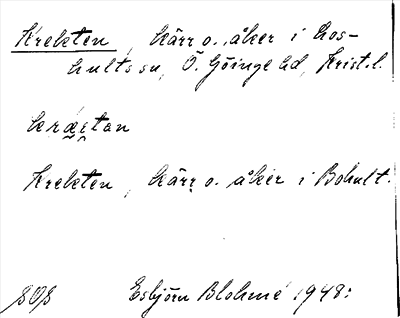 Krekten, kärr o. åker i Los-
hults sn, Ö. Göinge hd, Krist. l.
Krekten, kärr o. åker i Bohult.
SOS Esbjörn Blohmé 1948: